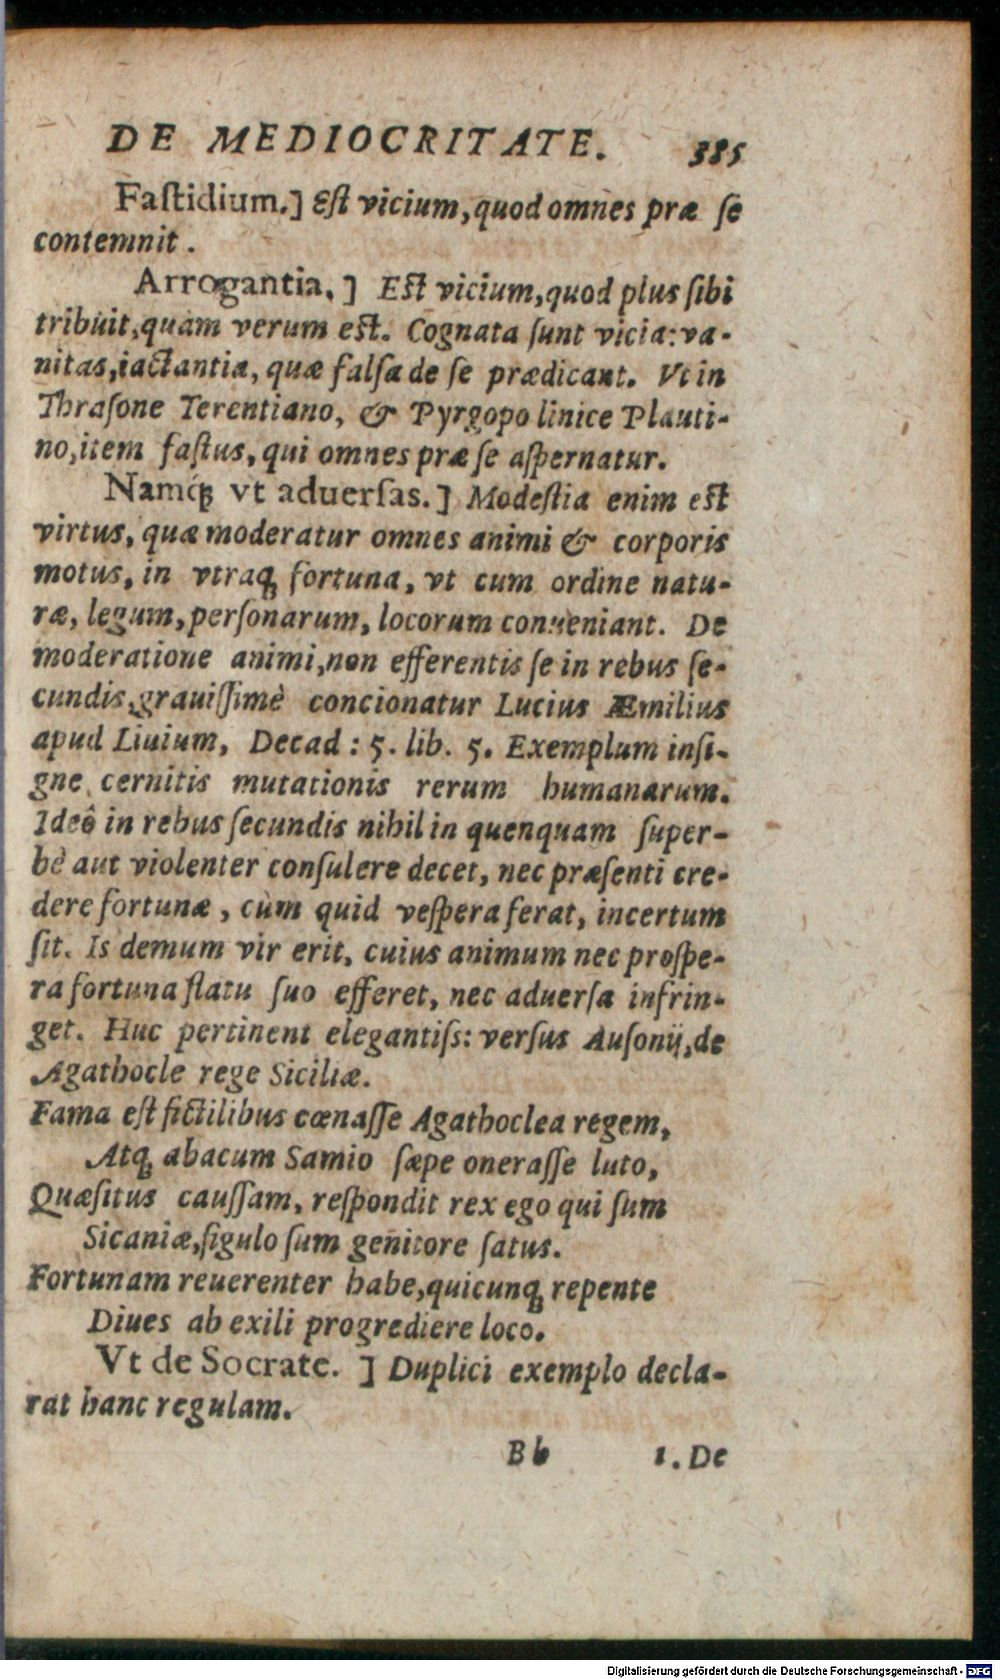 DE MEDIOCRITATE. 385
Fastidium.] Est vicium, quod omnes præ se
contemnit.
Arrogantia.] Est vicium, quod plus sibi
tribuit, quàm verum est. Cognata sunt vicia: va-
nitas, iactantia, quæ falsa de se prædicant. Vt in
Thrasone Terentiano, & Pyrgopolinice Plauti-
no, item fastus, qui omnes præ se aspernatur.
Namq́ꝫ vt aduersas.] Modestia enim est
virtus, quæ moderatur omnes animi & corporis
motus, in vtraqꝫ fortuna, vt cum ordine natu-
ræ, legum, personarum, locorum conueniant. De
moderatione animi, non efferentis se in rebus se-
cundis, grauissimè concionatur Lucius Æmilius
apud Liuium, Decad: 5. lib. 5. Exemplum insi-
gne cernitis mutationis rerum humanarum.
Ideò in rebus secundis nihil in quenquam super-
bè aut violenter consulere decet, nec præsenti cre-
dere fortunæ, cùm quid vespera ferat, incertum
sit. Is demum vir erit, cuius animum nec prospe-
ra fortuna flatu suo efferet, nec aduersa infrin-
get. Huc pertinent elegantiss: versus Ausonij, de
Agathocle rege Siciliæ.
Fama est fictilibus cœnasse Agathoclea regem,
Atqꝫ abacum Samio sæpe onerasse luto,
Quæsitus caussam, respondit rex ego qui sum
Sicaniæ, figulo sum genitore satus.
Fortunam reuerenter habe, quicunqꝫ repente
Diues ab exili progrediere loco.
Vt de Socrate.] Duplici exemplo decla-
rat hanc regulam.
Bb 1. De
Digitalisierung gefördert durch die Deutsche Forschungsgemeinschaft - DFG